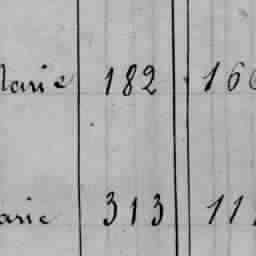 Marie 182 166
Marie 313 11